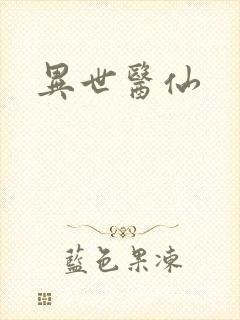 異世醫仙
藍色果凍